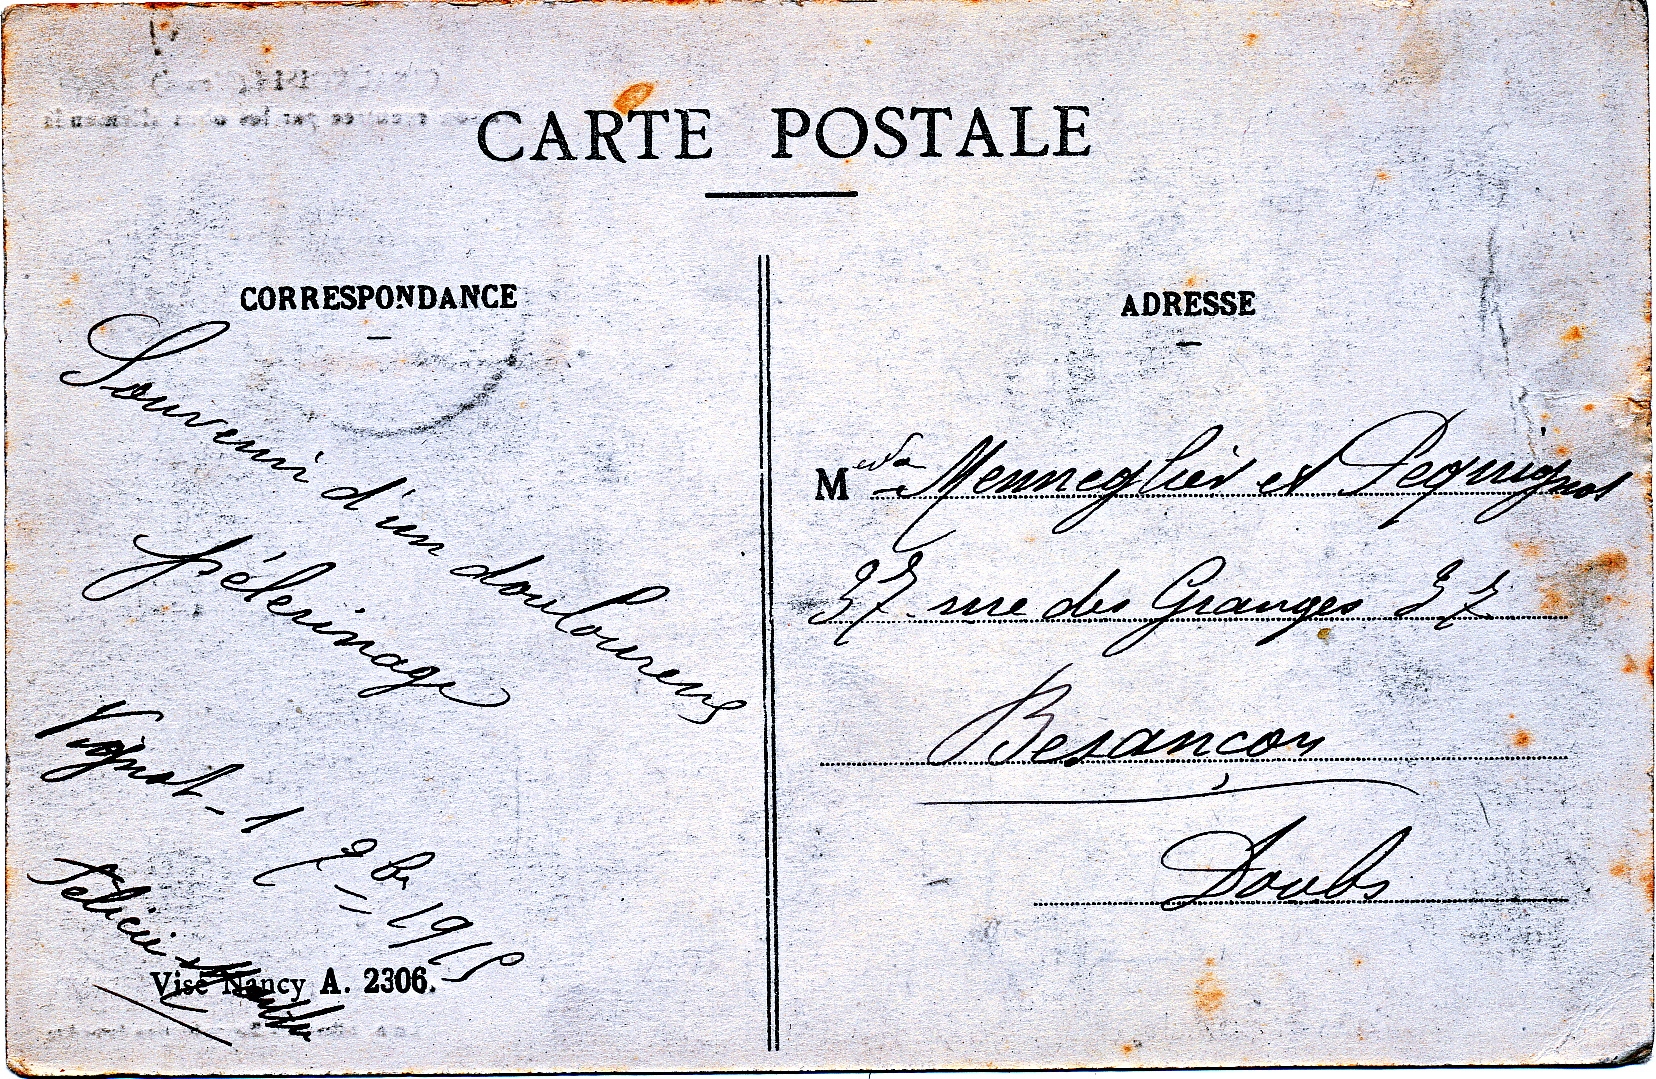 CARTE POSTALE
CORRESPONDANCE
Souvenir d'un douloureux
pélerinage
Vignot - 1 9bre 1915
Félicie
Visé Nancy A. 2306.
ADRESSE
M et Pequignot
37 rue des Granges 37
Besançon
Doubs